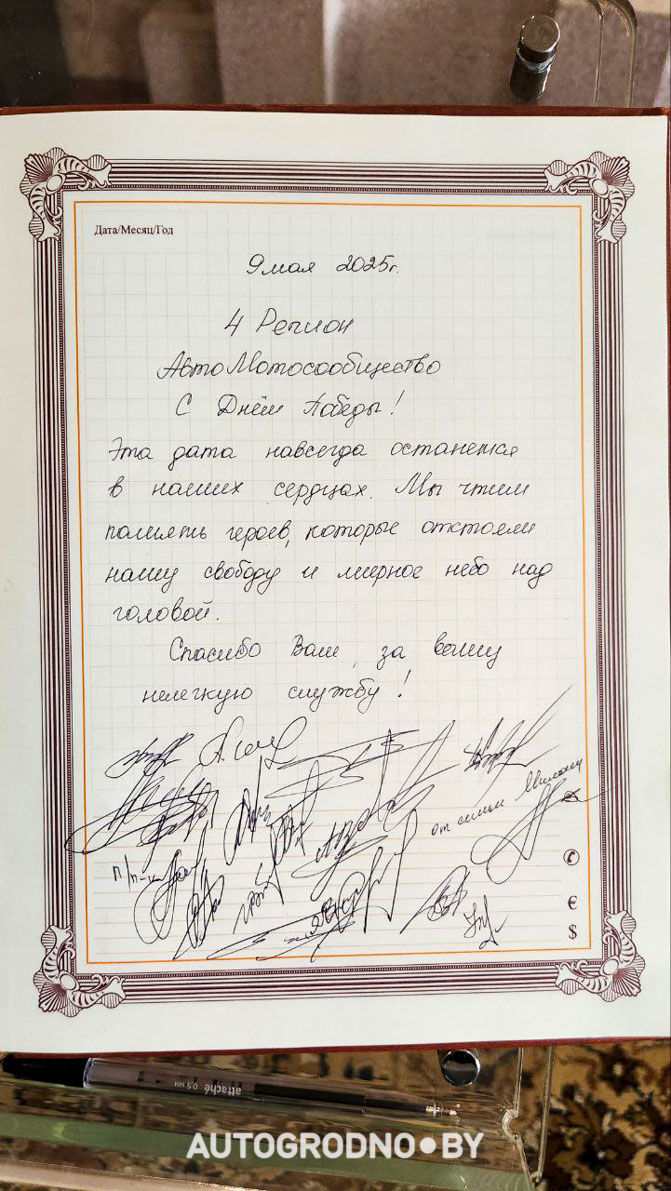 Дата/Месяц/Год
9 мая 2025г.
4 Регион
АвтоМотосообщество
С Днём Победы!
Эта дата навсегда останется
в наших сердцах. Мы чтим
память героев, которые отстояли
нашу свободу и мирное небо над
головой.
Спасибо Вам, за вашу
нелегкую службу!
от семьи
п/п-к
€
$
attaché 0,5 мм
AUTOGRODNO•BY